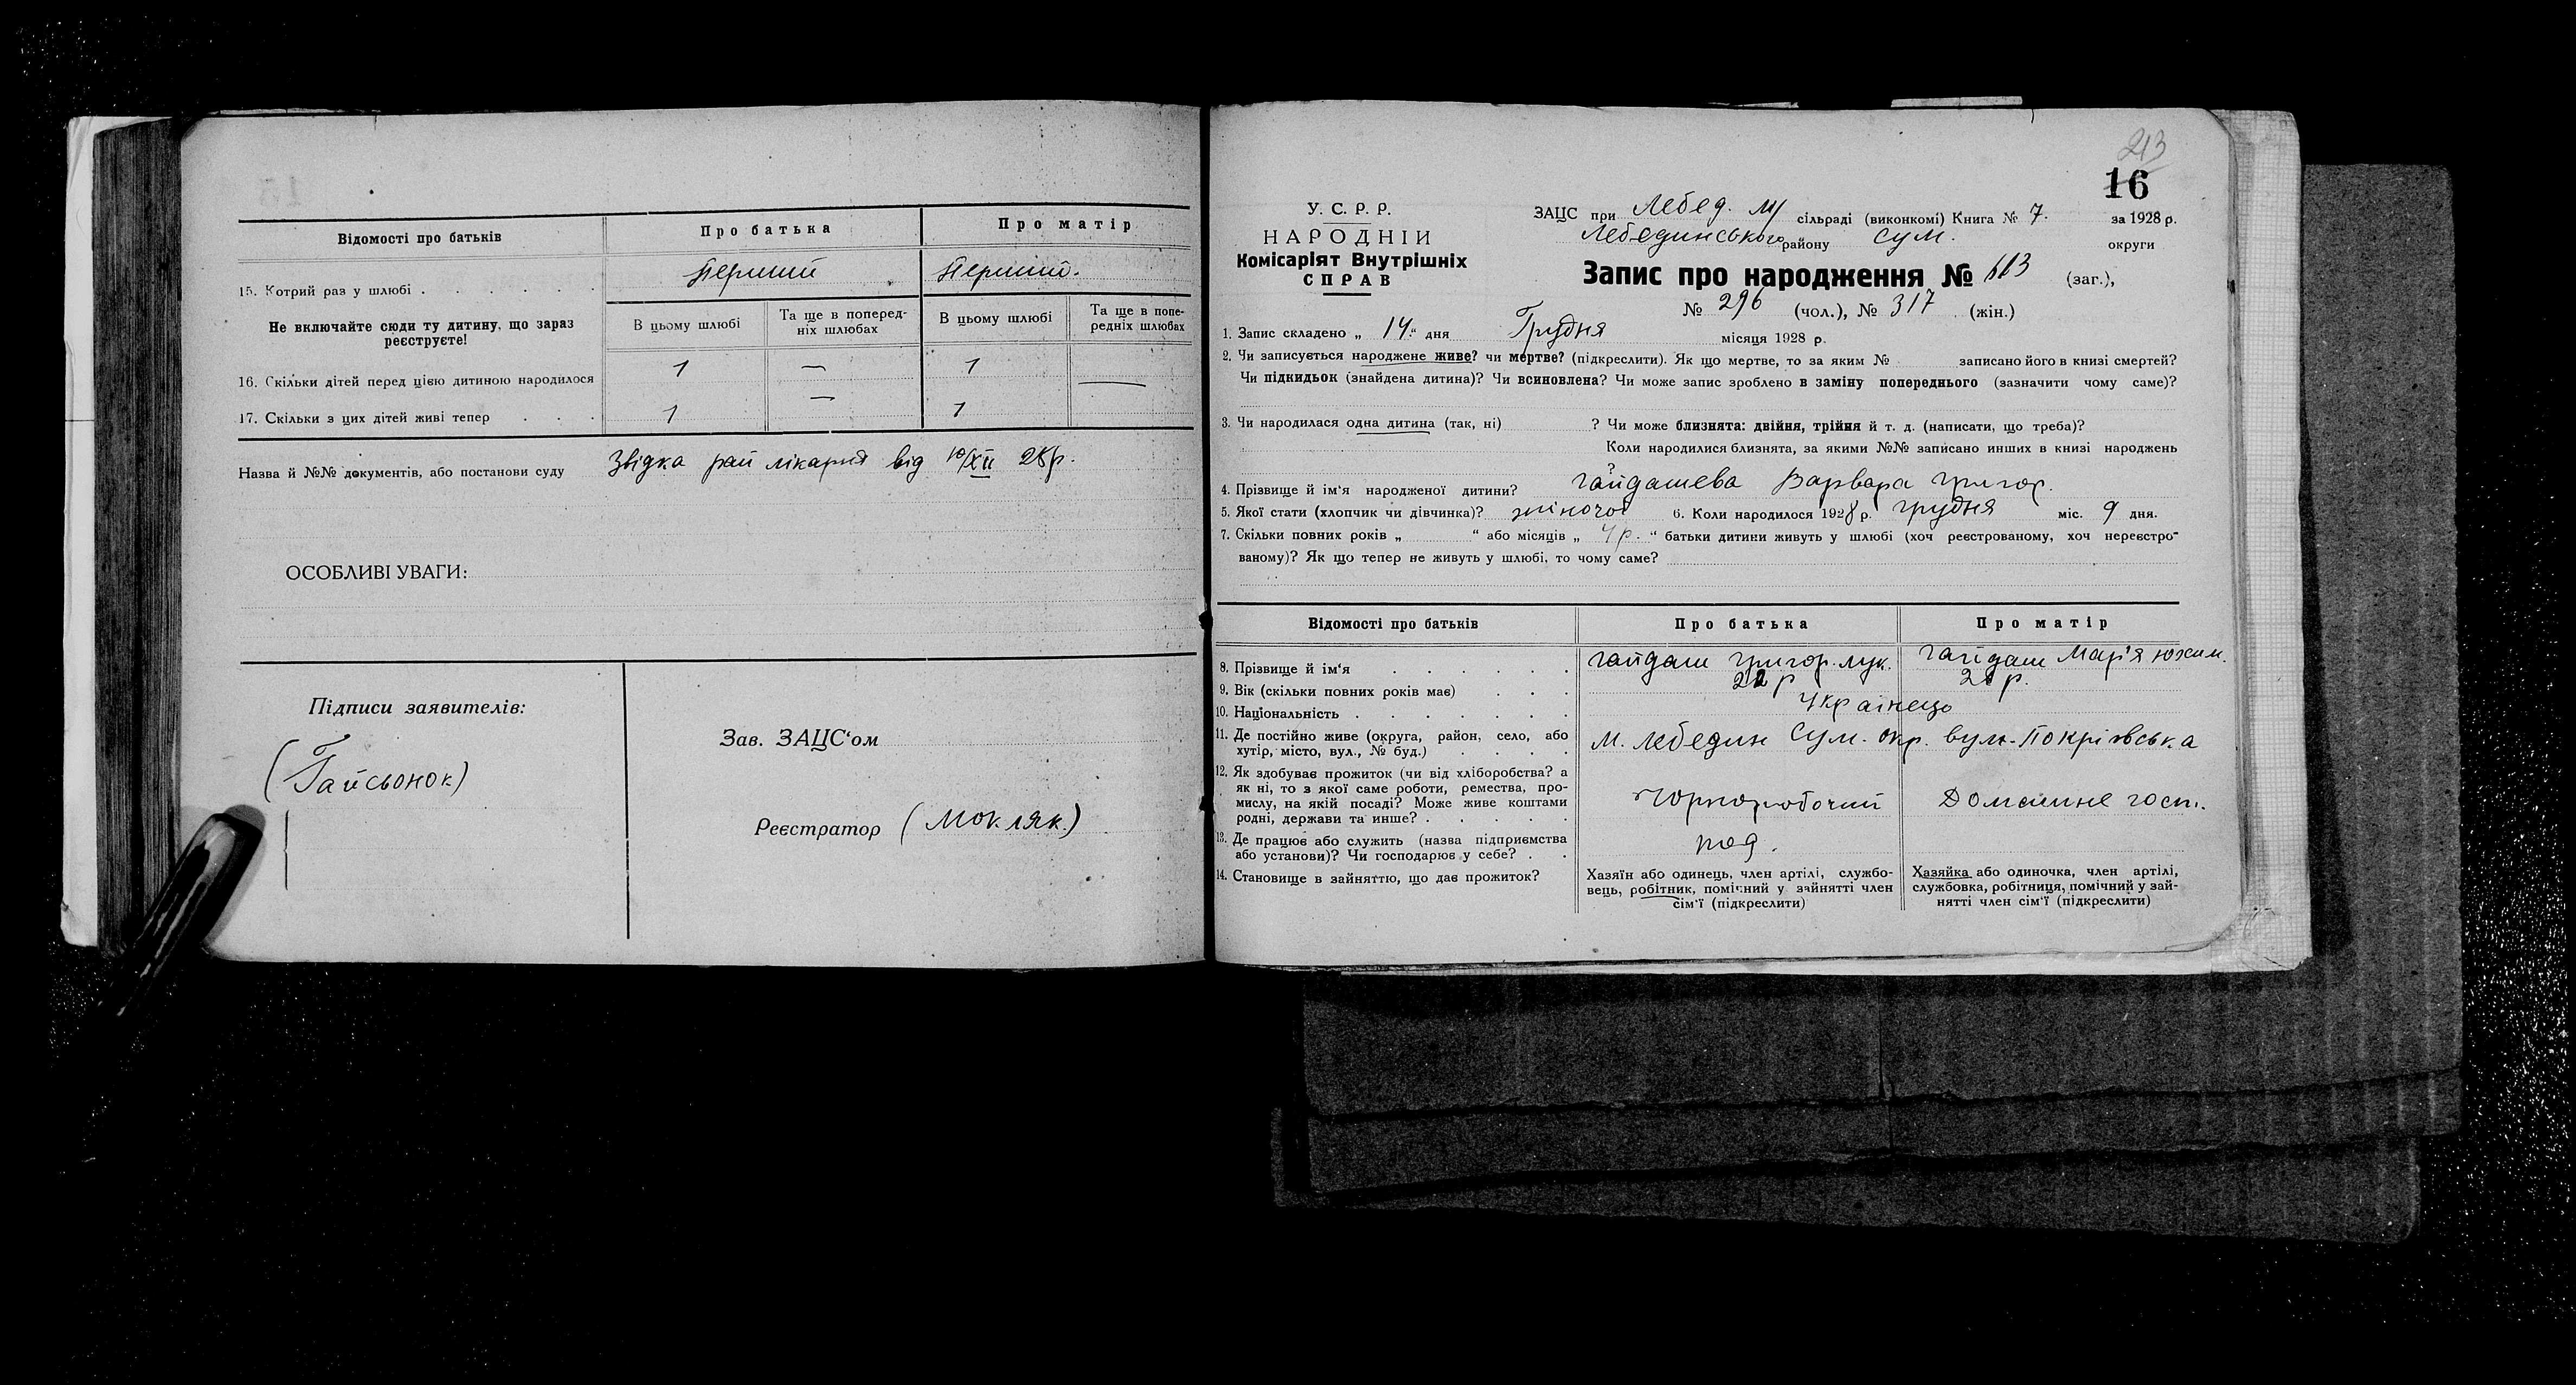 Відомості про батьків
Про батька
Про матір
15. Котрий раз у шлюбі
Перший
Перший.
Не включайте сюди ту дитину, що зараз реєструєте!
В цьому шлюбі
Та ще в поперед-
ніх шлюбах
В цьому шлюбі
Та ще в попе-
редніх шлюбах
16. Скільки дітей перед цією дитиною народилося
1 — 1 —
17. Скільки з цих дітей живі тепер
1 — 1
Назва й №№ документів, або постанови суду Звідка рай лікарня від 10/XII 28р.
ОСОБЛИВІ УВАГИ:
Підписи заявителів:
(Гайсьонок)
Зав. ЗАЦС‘ом
Реєстратор (Мокляк.)
213
16
У. С. Р. Р.
НАРОДНІЙ
Комісаріят Внутрішніх
СПРАВ
ЗАЦС при Лебед. м/ сільраді (виконкомі) Книга № 7. за 1928 р.
Лебединського району Сум. округи
Запис про народження № 613 (заг.),
№ 296 (чол.), № 317 (жін.)
1. Запис складено „ 14 “ дня Грудня місяця 1928 р.
2. Чи записується народжене живе? чи мертве? (підкреслити). Як що мертве, то за яким № записано його в книзі смертей?
Чи підкидьок (знайдена дитина)? Чи всиновлена? Чи може запис зроблено в заміну попереднього (зазначити чому саме)?
3. Чи народилася одна дитина (так, ні) ? Чи може близнята: двійня, трійня й т. д. (написати, що треба)?
Коли народилися близнята, за якими №№ записано инших в книзі народжень
?
4. Прізвище й ім‘я народженої дитини? Гайдашева Варвара Григор.
5. Якої стати (хлопчик чи дівчинка)? жіночої 6. Коли народилося 1928 р. грудня міс. 9 дня.
7. Скільки повних років „ “ або місяців „ 4р. “ батьки дитини живуть у шлюбі (хоч реєстрованому, хоч нереєстро-
ваному)? Як що тепер не живуть у шлюбі, то чому саме?
Відомості про батьків
Про батька
Про матір
8. Прізвище й ім‘я
Гайдаш Григор. Лук.
Гайдаш Мар'я Юхим.
9. Вік (скільки повних років має)
22 р
10. Національність
Українець
11. Де постійно живе (округа, район, село, або
хутір, місто, вул., № буд.)
м. Лебедин Сум. окр. вул. Покрівська
12. Як здобуває прожиток (чи від хліборобства? а
як ні, то з якої саме роботи, ремества, про-
мислу, на якій посаді? Може живе коштами
родні, держави та инше?
Чорноробочий
Домашнє госп.
13. Де працює або служить (назва підприємства
або установи)? Чи господарює у себе?
под.
14. Становище в зайняттю, що дає прожиток?
Хазяїн або одинець, член артілі, службо-
вець, робітник, помічний у зайнятті член
сім‘ї (підкреслити)
Хазяйка або одиночка, член артілі,
службовка, робітниця, помічний у зай-
нятті член сім‘ї (підкреслити)